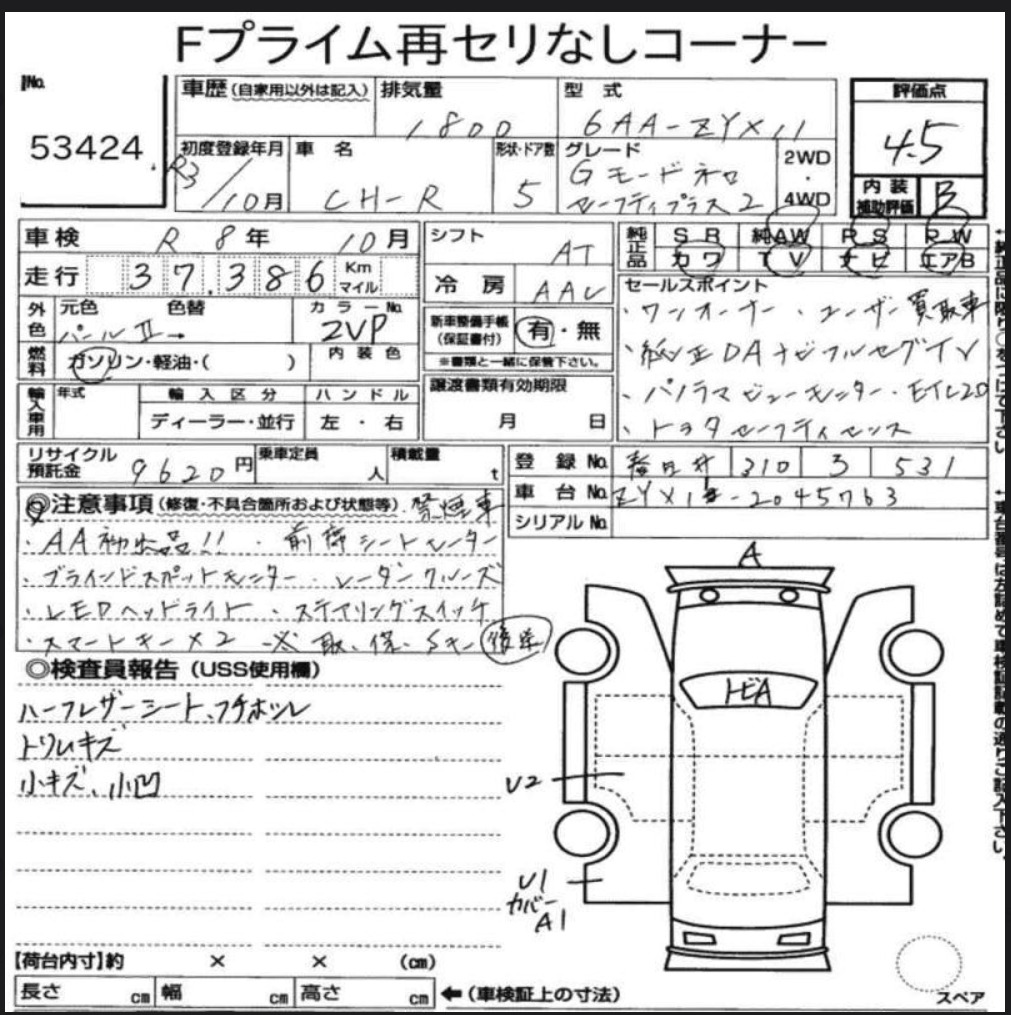 Fプライム再セリなしコーナー
No.
53424
車歴(自家用以外は記入)
排気量
1800
型 式
6AA-ZYX11
評価点
4.5
初度登録年月
R3/10月
車 名
CH-R
形状・ドア数
5
グレード
Gモードネロ
セーフティプラス2
2WD
・
4WD
内 装
補助評価
B
車検
R 8年 10月
シフト
AT
純正品
S R
純AW
P S
P W
カワ
T V
ナビ
エアB
走行
37,386
Km
マイル
冷 房
AAC
セールスポイント
・ワンオーナー ・ユーザー買取車
・純正DAナビフルセグTV
・パノラマビューモニター・ETC2.0
・トヨタセーフティセンス
外色
元色
色替
パールⅡ→
カラーNo.
2VP
新車整備手帳
(保証書付)
有・無
※書類と一緒に保管下さい。
燃料
ガソリン・軽油・( )
内 装 色
輸入車用
年式
輸 入 区 分
ディーラー・並行
ハ ン ド ル
左 ・ 右
譲渡書類有効期限
月 日
リサイクル
預託金
9620円
乗車定員
人
積載量
t
登 録 No.
春日井 310 ヲ 531
車 台 No.
ZYX11-2045763
シリアル No.
◎注意事項(修復・不具合箇所および状態等)禁煙車
・AA初出品!! ・前席シートヒーター
・ブラインドスポットモニター ・レーダークルーズ
・LEDヘッドライト ・ステアリングスイッチ
・スマートキー×2 ※取、保、Sキー 後送
◎検査員報告(USS使用欄)
ハーフレザーシート、フチホツレ
トリムキズ
小キズ、小凹
A
トビA
U2
U1
カバー
A1
【荷台内寸】約 × × (cm)
長さ cm
幅 cm
高さ cm
←(車検証上の寸法)
スペア
↑純正品に限り○をつけて下さい
↑車台番号は左詰めで車検証記載の通りご記入下さい。